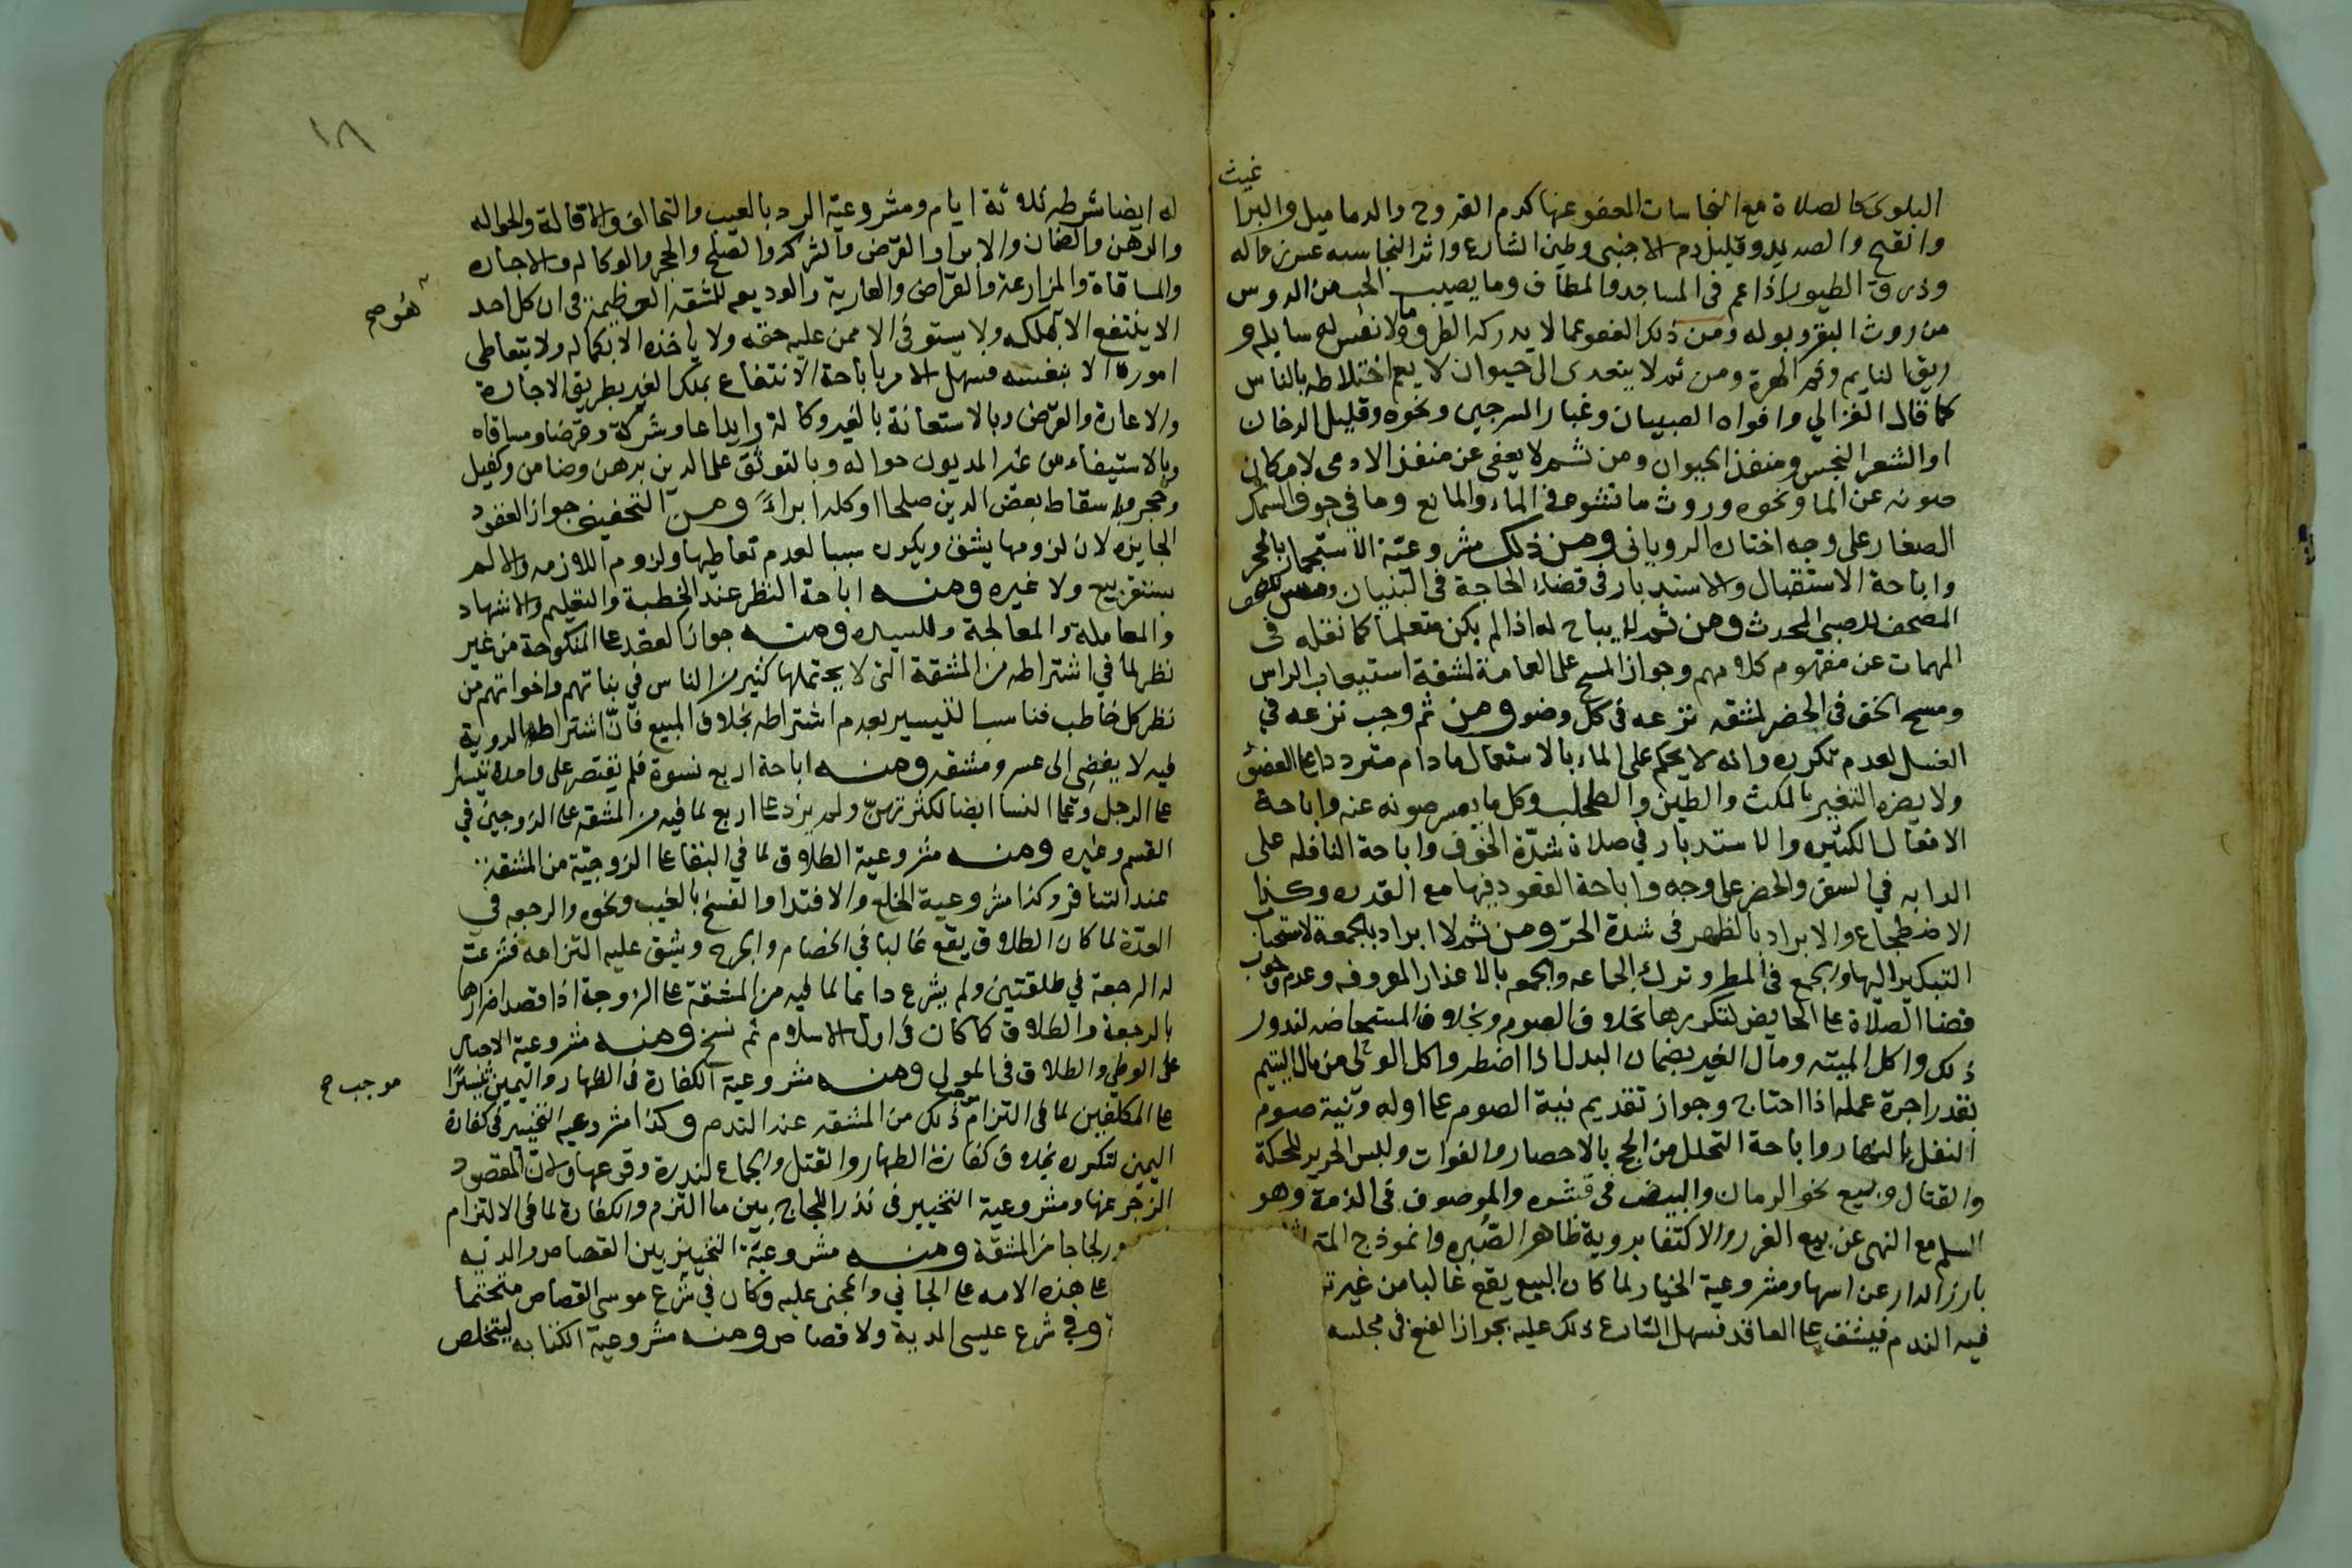 البلوى كالصلاة مع النجاسات المعفو عنها كدم القروح والدماميل والبراغيث
والقيح والصديد وقليل دم الاجنبي وطين الشارع واثر النجاسه عسر زواله
وذرق الطيور اذا عم في المساجد والمطاف وما يصيب الحب من الدوس
من روث البقر وبوله ومن ذلك العفو عما لا يدركه الطرف وما لا نفس له سايله و
ريق النايم وفم الهرة ومن ثم لا يتعدى الى حيوان لا يعم اختلاطه بالناس
كما قال الغزالي وافواه الصبيان وغبار السرجين ونحوه وقليل الدخان
او الشعر النجس ومنفذ الحيوان ومن ثم لا يعفى عن منفذ الادمى لامكان
صونه عن الما ونحوه وروث ما نشوه في الماء والمايع وما في جوف السمك
الصغار على وجه اختاره الروياني ومن ذلك مشروعية الاستجمار بالحجر
واباحة الاستقبال والاستدبار في قضاء الحاجة في البنيان ومس
المصحف للصبي المحدث ومن ثم لا يباح له اذا لم يكن متعلما كما نقله في
المهمات عن مفهوم كلامهم وجواز المسح على العمامة لمشقة استيعاب الراس
ومسح الخف في الحضر لمشقه نزعه في كل وضو ومن ثم وجب نزعه في
الغسل لعدم تكرره وانه لا يحكم على الماء بالاستعمال ما دام مترددا على العضو
ولا يضره التغير بالمكث والطين والطحلب وكل ما يعسر صونه عنه واباحة
الافعال الكثيره والاستدبار في صلاة شدة الخوف واباحة النافله على
الدابه في السفر والحضر على وجه واباحة القعود فيها مع القدره وكذا
الاضطجاع والابراد بالظهر في شدة الحر ومن ثم لا ابراد بالجمعة لاستحباب
التبكير اليها والجمع في المطر وترك الجماعه والجمعه بالاعذار المعروفه وعدم وجوب
قضا الصلاة على الحايض لتكررها بخلاف الصوم وبخلاف المستحاضه لندور
ذلك واكل الميته ومال الغير بضمان البدل اذا اضطر واكل الولي من مال اليتيم
بقدر اجرة عمله اذا احتاج وجواز تقديم نية الصوم على اوله ونية صوم
النفل بالنهار واباحة التحلل من الحج بالاحصار والفوات ولبس الحرير للحكة
والقتال وبيع نحو الرمان والبيض في قشوه والموصوف في الذمة وهو
السلم مع النهى عن بيع الغرر والاكتفا بروية ظاهر الصبره وانموذج
بارز الدار عن اسها ومشروعية الخيار لما كان البيع يقع غالبا من غير
فيه الندم فيشق على العاقد فسهل الشارع ذلك عليه بجواز الفسخ في مجلسه
١٨
له ايضا شرطه ثلاثة ايام ومشروعية الرد بالعيب والتحالف والاقالة والحواله
والرهن والضمان والابرا والقرض والشركه والصلح والحجر والوكاله والاجاره
والمساقاة والمزارعة والقراض والعارية والوديعه للمشقه العظيمه في ان كل احد
لا ينتفع الا بملكه ولا يستوفي الا ممن عليه حقه ولا ياخذه الا بكماله ولا يتعاطى
اموره الا بنفسه فسهل الامر باباحة الانتفاع بملك الغير بطريق الاجارة
والاعارة والقرض وبالاستعانة بالغير وكالة وايداعا وشركة وقرضا ومساقاه
وبالاستيفاء من غير المديون حواله وبالتوثق على الدين برهن وضامن وكفيل
وحجر وباسقاط بعض الدين صلحا او كله ابراء ومن التخفيف جواز العقود
الجايزه لان لزومها يشق ويكون سببا لعدم تعاطيها ولزوم اللازمه والا لم
يستقر بيع ولا غيره ومنه اباحة النظر عند الخطبة والتعليم والاشهاد
والمعاملة والمعالجة وللسيد ومنه جواز العقد على المنكوحة من غير
نظر لما في اشتراطه من المشقة التي لا يحتملها كثير من الناس في بناتهم واخواتهم من
نظر كل خاطب فناسب التيسير بعدم اشتراطه بخلاف المبيع فان اشتراط الروية
فيه لا يفضي الى عسر ومشقه ومنه اباحة اربع نسوة فلم يقتصر على واحدة تيسيرا
على الرجل وعلى النسا ايضا لكثرتهن ولم يزد على اربع لما فيه من المشقه على الزوجين في
القسم وغيره ومنه مشروعية الطلاق لما في البقا على الزوجية من المشقه
عند التنافر وكذا مشروعية الخلع والافتدا والفسخ بالعيب ونحوه والرجعه في
العدة لما كان الطلاق يقع غالبا في الخصام والحرج ويشق عليه التزامه فشرعت
له الرجعة في طلقتين ولم يشرع دائما لما فيه من المشقة على الزوجة اذا قصد اضرارها
بالرجعة والطلاق كما كان في اول الاسلام ثم نسخ ومنه مشروعية الاجبار
على الوطي والطلاق في المولي ومنه مشروعية الكفارة في الظهار واليمين تيسيرا
على المكلفين لما في التزام ذلك من المشقه عند الندم وكذا مشروعيه التخيير في كفارة
اليمين لتكرره بخلاف كفارة الظهار والقتل والجماع لندرة وقوعها ولان المقصود
الزجر عنها ومشروعية التخيير في نذر اللجاج بين ما التزم والكفارة لما في الالتزام
لجاجا من المشقة ومنه مشروعية التخيير بين القصاص والديه
على هذه الامه على الجاني والمجنى عليه وكان في شرع موسى القصاص متحتما
وفي شرع عيسى الدية ولا قصاص ومنه مشروعية الكتابه ليتخلص
موجب صح